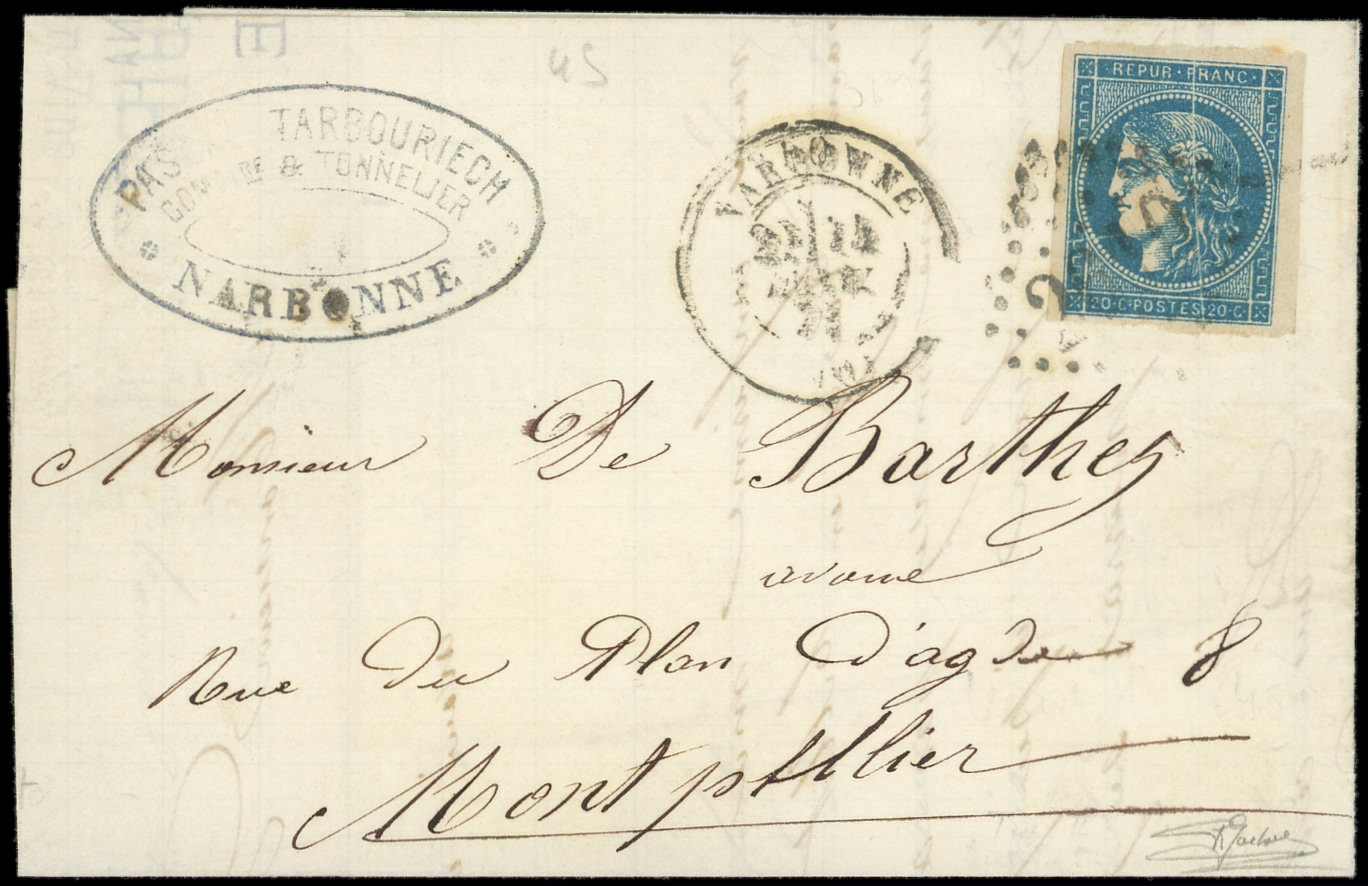 45
TARBOURIECH
& TONNELIER
NARBONNE
NARBONNE
REPUB·FRANC·
20·C·POSTES·20·C·
Monsieur De Barthes
avoué
Rue Du Plan D'agde 8
Montpellier